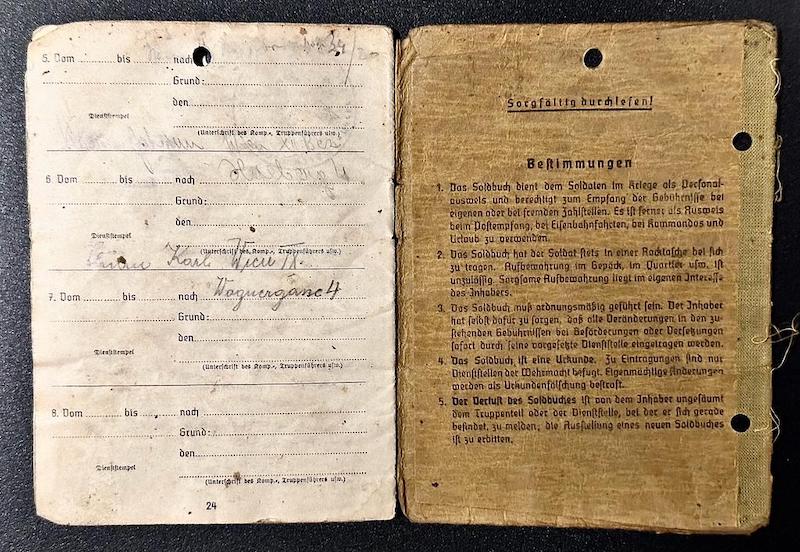 5. Vom bis nach
Grund:
den
Dienststempel
(Unterschrift des Komp.-, Truppenführers usw.)
6. Vom bis nach
Grund:
den
Dienststempel
(Unterschrift des Komp.-, Truppenführers usw.)
Karl Wien
7. Vom bis nach
Grund:
den
Dienststempel
(Unterschrift des Komp.-, Truppenführers usw.)
8. Vom bis nach
Grund:
den
Dienststempel
(Unterschrift des Komp.-, Truppenführers usw.)
24
Sorgfältig durchlesen!
Bestimmungen
1. Das Soldbuch dient dem Soldaten im Kriege als Personal-
ausweis und berechtigt zum Empfang der Gebührnisse bei
eigenen oder bei fremden Zahlstellen. Es ist ferner als Ausweis
beim Postempfang, bei Eisenbahnfahrten, bei Kommandos und
Urlaub zu verwenden.
2. Das Soldbuch hat der Soldat stets in einer Rocktasche bei sich
zu tragen. Aufbewahrung im Gepäck, im Quartier usw. ist
unzulässig. Sorgsame Aufbewahrung liegt im eigenen Interesse
des Inhabers.
3. Das Soldbuch muß ordnungsmäßig geführt sein. Der Inhaber
hat selbst dafür zu sorgen, daß alle Veränderungen in den zu-
stehenden Gebührnissen bei Beförderungen oder Versetzungen
sofort durch seine vorgesetzte Dienststelle eingetragen werden.
4. Das Soldbuch ist eine Urkunde. Zu Eintragungen sind nur
Dienststellen der Wehrmacht befugt. Eigenmächtige Änderungen
werden als Urkundenfälschung bestraft.
5. Der Verlust des Soldbuches ist von dem Inhaber ungesäumt
dem Truppenteil oder der Dienststelle, bei der er sich gerade
befindet, zu melden; die Ausstellung eines neuen Soldbuches
ist zu erbitten.